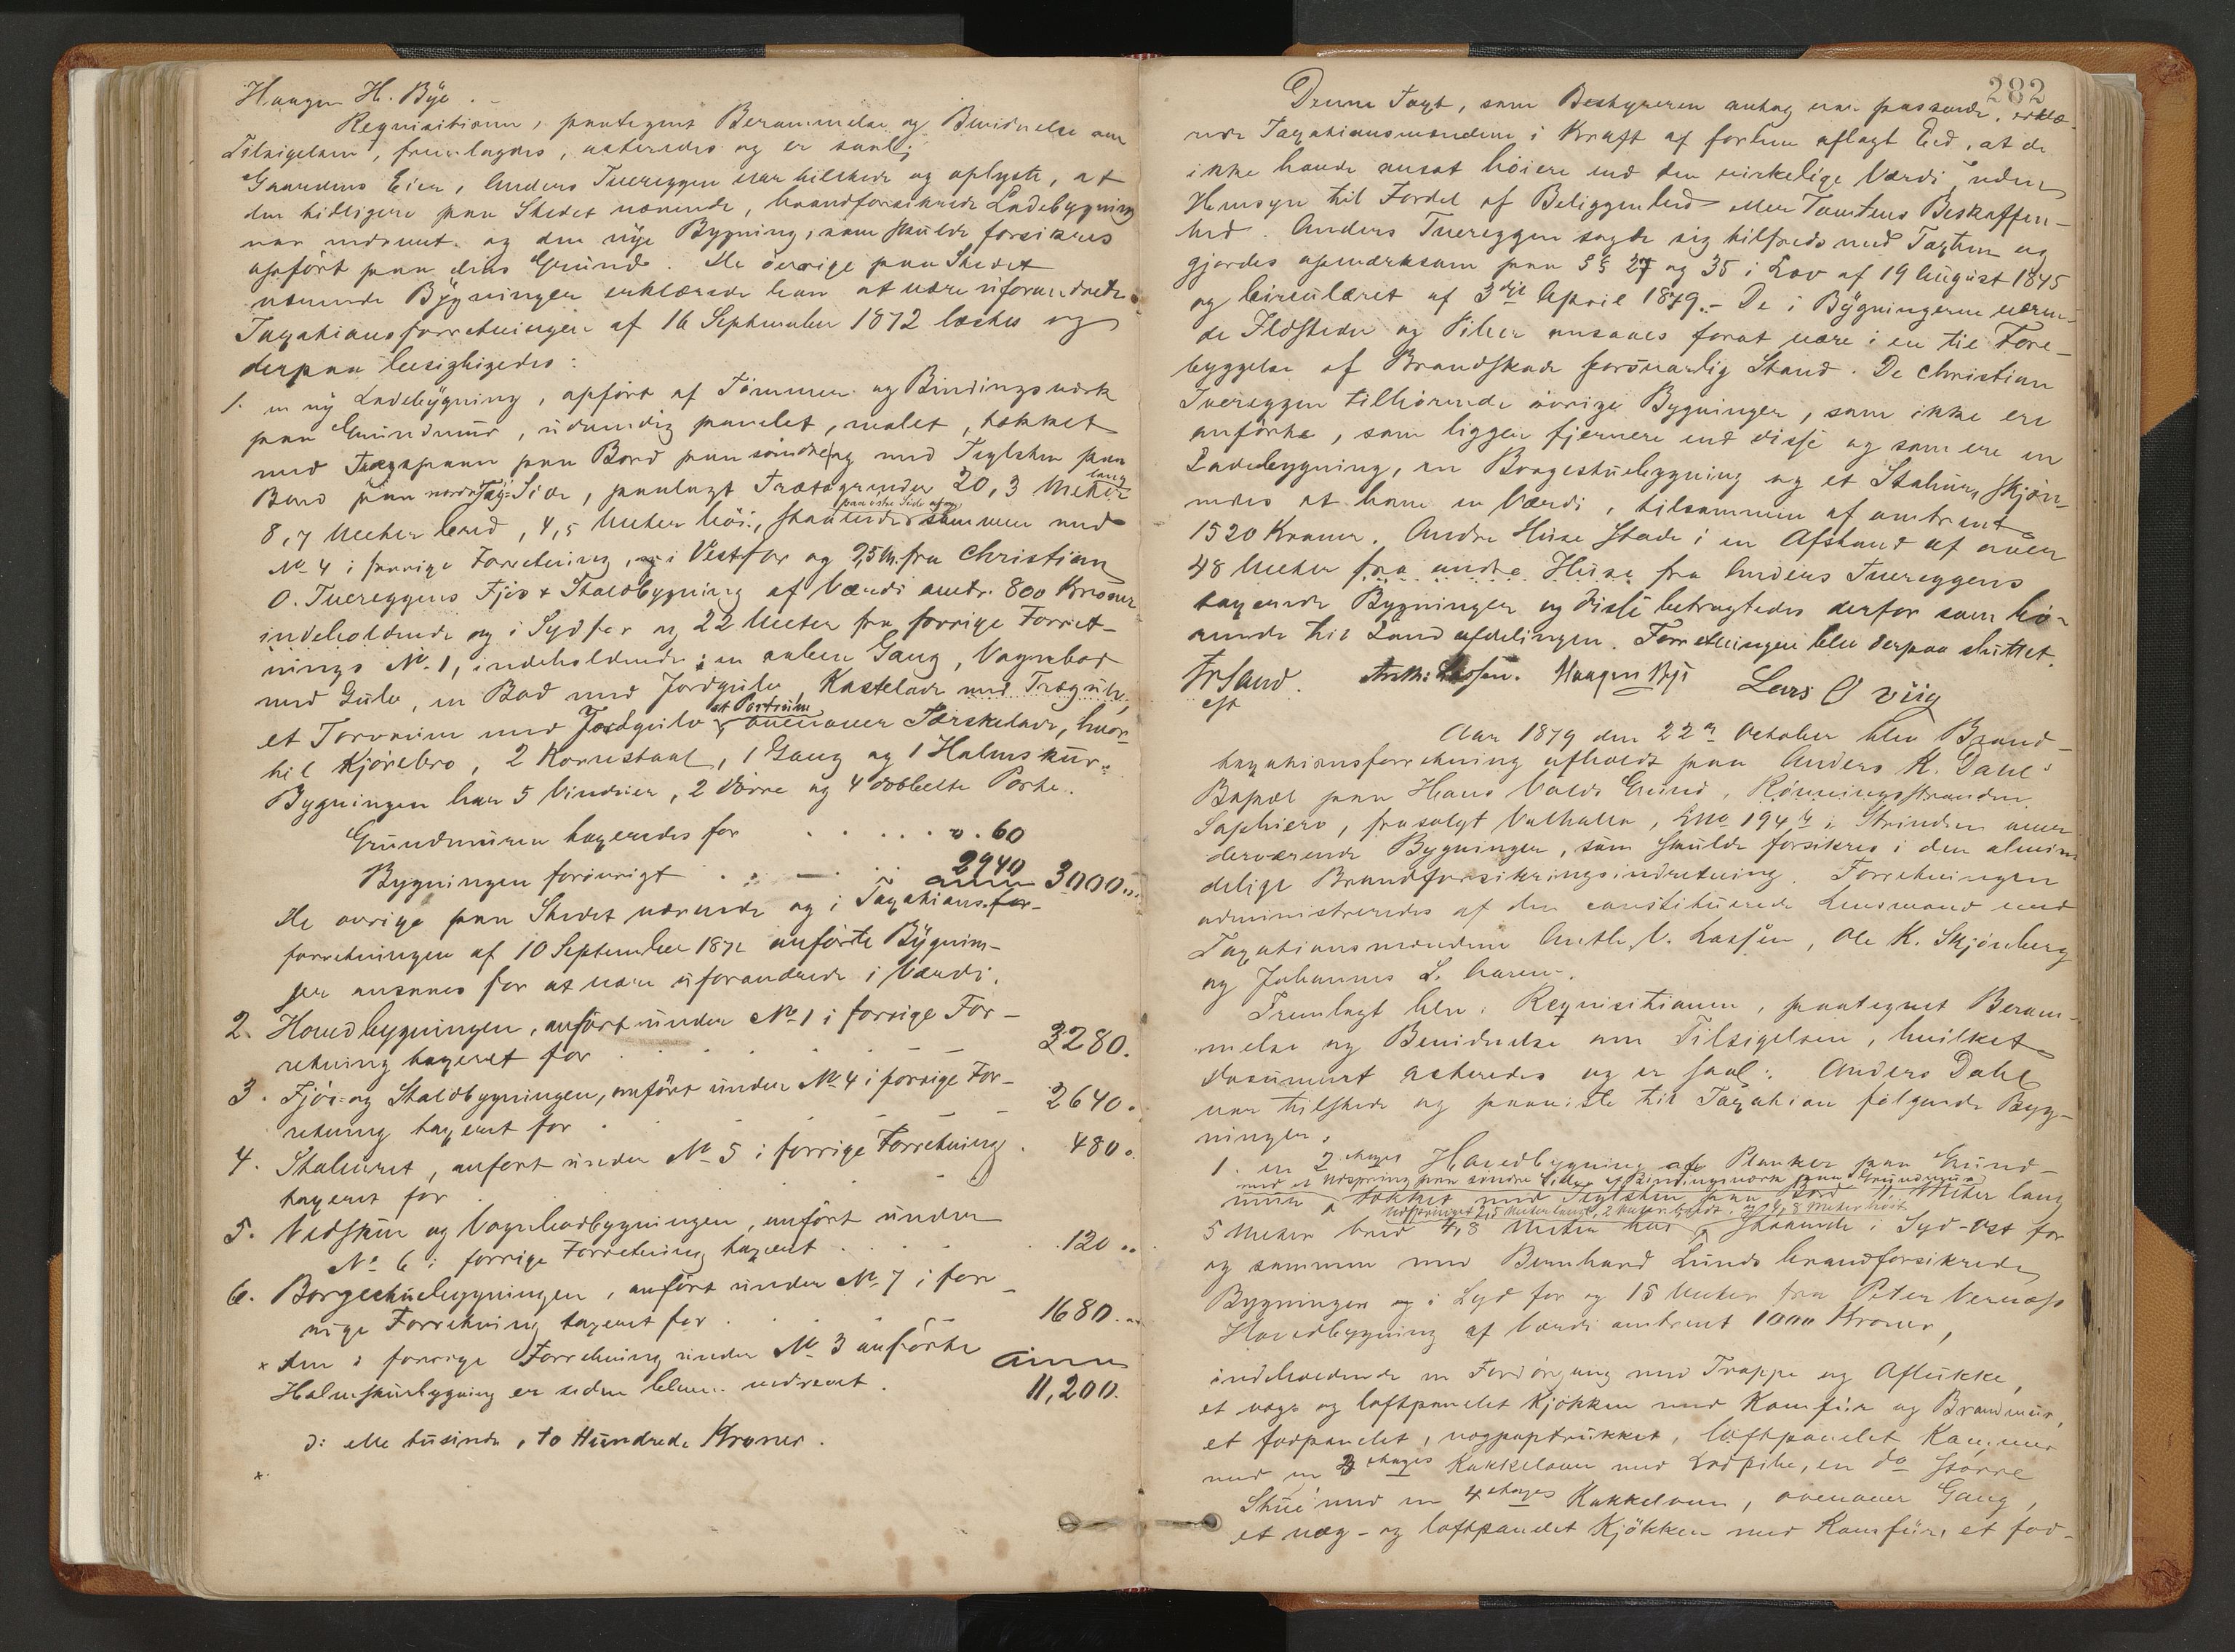 Haagen H. Bye.
Requisitionen, paategnet Berammelse og Bevidnelse om
Tilsigelsen, fremlagdes, acteredes og er saal:
Gaardens Eier, Anders Tvereggen var tilstede og oplyste, at
den tidligere paa Stedet værende, brandforsikrede Ladebygning
var nedrevet og den nye Bygning, som skulde forsikres
opført paa dens Grund. De øvrige paa Stedet
værende Bygninger erklærede han at være uforandrede.
Taxationsforretningen af 16 September 1872 læstes og
derpaa besigtigedes:
1. en ny Ladebygning, opført af Tømmer og Bindingsværk
paa Grundmur, udvendig panelet, malet, tækket
med Tægspaan paa Bord paa søndre og med Teglsten paa
Bord paa nordre Tag-Side, paalagt Trætagrender 20,3 Meter lang
8,7 Meter bred, 4,5 Meter høi, staaende paa østre Side af og sammen med
No 4 i forrige Forretning, i Vest for og 25 M. fra Christian
O. Tvereggens Fjøs & Staldbygning af Værdi omtr. 800 Kroner
indeholdende og i Syd for og 22 Meter fra forrige Forret-
nings No. 1, indeholdende: en aaben Gang, Vognbod
med Gulv, en Bod med Jordgulv, Kastelade med Trægulv,
et Torvrum med Jordgulv et Portrum, ovenover Tærskelade, hvor-
til Kjørebro, 2 Kornstaal, 1 Gang og 1 Halmskur.
Bygningen har 5 Vinduer, 2 Dørre og 4 dobbelte Porte.
Grundmuren taxeredes for . . . . . . 60
Bygningen forøvrigt . . . 2940 3000..
De øvrige paa Stedet værende og i Taxations-for-
forretningen af 10 September 1872 anførte Bygnin-
ger ansaaes for at være uforandrede i Værdi.
2. Hovedbygningen, anført under No 1 i forrige For-
retning taxeret for . . . . 3280.
3. Fjøs- og Staldbygningen, anført under No 4 i forrige For-
retning taxeret for . . . 2640.
4. Stabburet, anført under No 5 i forrige Forretning . 480.
taxeret for
5. Vedskur og Vognbodbygningen, anført under
No 6 i forrige Forretning taxeret . . . . 120..
6. Borgestuebygningen, anført under No 7 i for-
rige Forretning taxeret for . . . 1680..
x den i forrige Forretning under No 3 anførte
Halmskurbygning er siden bleven nedrevet. 11,200.
ɔ: elle tusinde, to Hundrede Kroner.
x.
282
Denne Taxt, som Bestyreren antog var passende, erklæ-
rede Taxationsmændene i Kraft af forhen aflagt Eed, at de
ikke havde ansat høiere end den virkelige Værdi, uden
Hensyn til Fordel af Beliggenhed eller Tomtens Beskaffen-
hed. Anders Tvereggen sagde sig tilfreds med Taxten og
gjordes opmærksom paa §§ 27 og 35 i Lov af 19 August 1845
og Circulæret af 3die April 1879. - De i Bygningerne væren-
de Ildsteder og Piber ansaaes forat være i en til Fore-
byggelse af Brandskade forsvarlig Stand. De Christian
Tvereggen tilhørende øvrige Bygninger, som ikke ere
anførte, som ligger fjernere end disse og som ere en
Ladebygning, en Borgestuebygning og et Stabur, skjøn-
nedes at have en Værdi, tilsammen af omtrent
1520 Kroner. Andre Huse stode i en Afstand af over
48 Meter fra andre Huse fra Anders Tvereggens
taxerede Bygninger og disse betragtedes derfor som hø-
rende til Landafdelingen. Forretningen blev derpaa sluttet.
Fr Sand. Anth: Lassen. Haagen Bye Lars O viig
cst
Aar 1879 den 22de October blev Brand-
taxationsforretning afholdt paa Anders K. Dahls
Bopæl paa Hans Volds Grund, Rønningsstranden,
Saphiero, frasolgt Valhalla, LNo 194 i Strinden over
derværende Bygninger, som skulde forsikres i den almin-
delige Brandforsikringsindretning. Forretningen
administreredes af den constituerede Lensmand med
Taxationsmændene Anth. V. Lassen, Ole K. Skjønberg
og Johannes L. Aaren.
Fremlagt blev: Requisitionen, paategnet Beram-
melse og Bevidnelse om Tilsigelsen, hvilket
Document acteredes og er saal: Anders Dahl
var tilstede og paaviste til Taxation følgende Byg-
ninger.
1. en 2 etages Hovedbygning af Planker paa Grund-
med et Udspring paa søndre Side af Bindingsværk paa Grundmur
mur, tækket med Teglsten paa Bord 11 Meter lang
Udspringet 2,5 Meter langt, 2 Meter bredt og 4,8 Meter høit
5 Meter bred 4,8 Meter høi, staaende i Syd-Vest for
og sammen med Bernhard Lunds brandforsikrede
Bygninger og i Syd for og 15 Meter fra Peter Vernæss
Hovedbygning af Værdi omtrent 1000 Kroner,
indeholdende en Fordørgang med Trappe og Aflukke,
et væg- og loftpanelet Kjøkken med Komfur og Brandmur,
et fodpanelet, vægpaptrukket, loftpanelet Kammer
med en 3 etages Kakkelovn med Lodpibe, en do større
Stue med en 4 etages Kakkelovn, ovenover Gang,
et væg- og loftpanelet Kjøkken med Komfur, et fod-